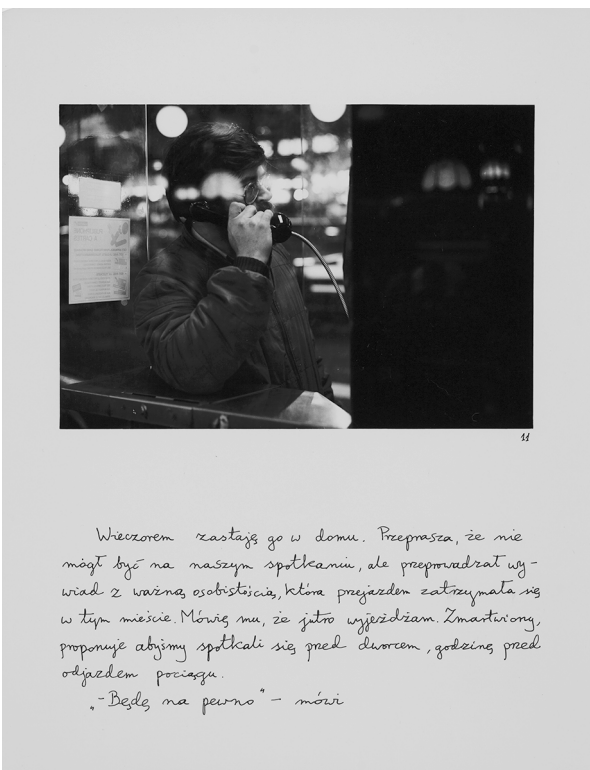 11
Wieczorem zastaję go w domu. Przeprasza, że nie
mógł być na naszym spotkaniu, ale przeprowadzał wy-
wiad z ważną osobistością, która przejazdem zatrzymała się
w tym mieście. Mówię mu, że jutro wyjeżdżam. Zmartwiony,
proponuje abyśmy spotkali się pred dworcem, godzinę pred
odjazdem pociągu.
„-Będę na pewno" - mówi